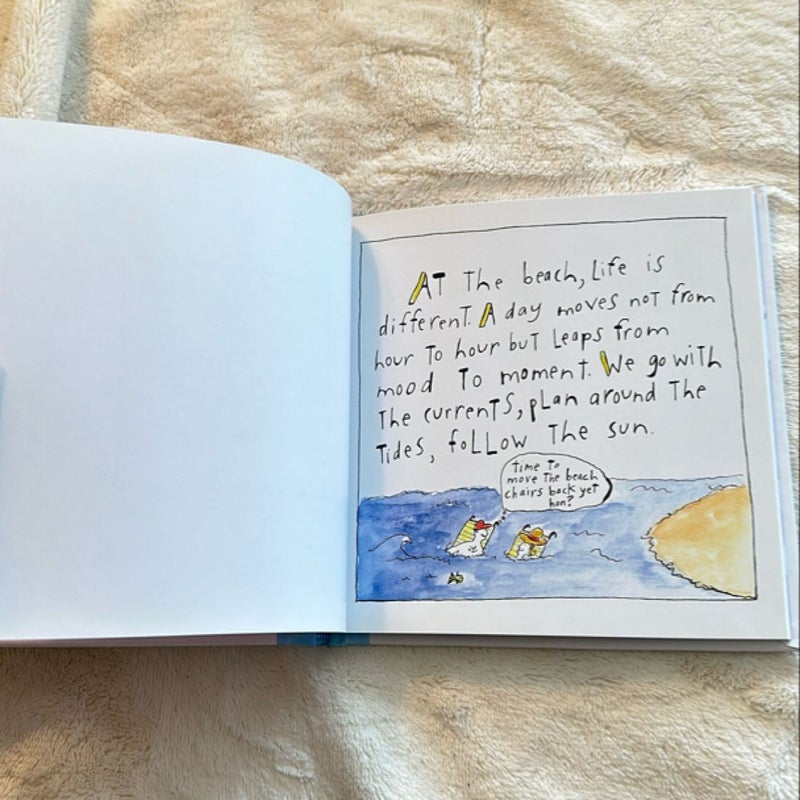 AT The beach, Life is
different. A day moves noT from
hour To hour buT Leaps from
mood To momenT. We go wiTh
The currenTs, pLan around The
Tides, foLLow The sun.
Time To
move The beach
chairs back yeT
hon?